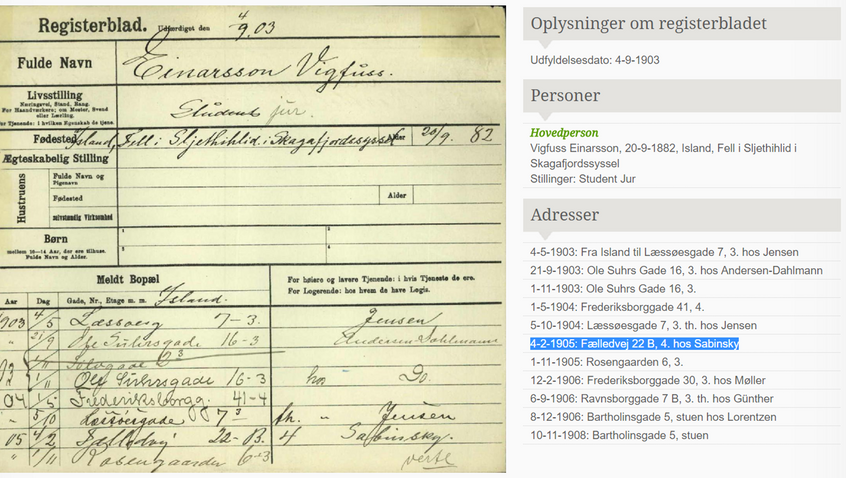 Registerblad. Udfærdiget den 4/9 03
Fulde Navn Einarsson Vigfuss.
Livsstilling Student jur.
Næringsvei, Stand, Rang.
For Haandværkere; om Mester, Svend
eller Lærling.
For Tjenende: i hvilken Egenskab de tjene.
Fødested Island, Fell i Sljethihlid i Skagafjordssyssel Alder 20/9. 82
Ægteskabelig Stilling
Hustruens
Fulde Navn og
Pigenavn
Fødested Alder
selvstændig Virksomhed
Børn
mellem 10–14 Aar, der ere tilhuse.
Fulde Navn og Alder.
1 3
2 4
Meldt Bopæl
For høiere og lavere Tjenende: i hvis Tjeneste de ere.
For Logerende: hos hvem de have Logis.
Aar Dag Gade, Nr., Etage m. m. Island.
903 4/5 Læssøesg 7-3. Jensen
" 21/9 Ole Suhrsgade 16-3 Andersen-Dahlmann
1/11 Ole Suhrsgade 16-3 hos Do.
04 1/5 Frederiksborgg. 41-4
" 5/10 Læssøesgade 7 3 th. " Jensen
05 4/2 Fælledvej 22-B. 4 Sabinsky.
" 1/11 Rosengaarden 6-3 verte
Oplysninger om registerbladet
Udfyldelsesdato: 4-9-1903
Personer
Hovedperson
Vigfuss Einarsson, 20-9-1882, Island, Fell i Sljethihlid i
Skagafjordssyssel
Stillinger: Student Jur
Adresser
4-5-1903: Fra Island til Læssøesgade 7, 3. hos Jensen
21-9-1903: Ole Suhrs Gade 16, 3. hos Andersen-Dahlmann
1-11-1903: Ole Suhrs Gade 16, 3.
1-5-1904: Frederiksborggade 41, 4.
5-10-1904: Læssøesgade 7, 3. th. hos Jensen
4-2-1905: Fælledvej 22 B, 4. hos Sabinsky
1-11-1905: Rosengaarden 6, 3.
12-2-1906: Frederiksborggade 30, 3. hos Møller
6-9-1906: Ravnsborggade 7 B, 3. th. hos Günther
8-12-1906: Bartholinsgade 5, stuen hos Lorentzen
10-11-1908: Bartholinsgade 5, stuen